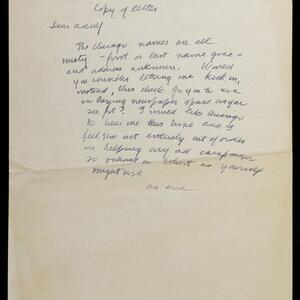 Copy of letter
Dear Adolf
The Chicago names are all
misty - first or last name gone -
and address unknown. Would
you consider letting me kick in,
instead, this check for you to use
in buying newspaper space as you
see fit? I would like enough
to have me this time and I
feel you not entirely out of order
in helping any ad campaign
so valiant an exhort as yourself
might use
as ever